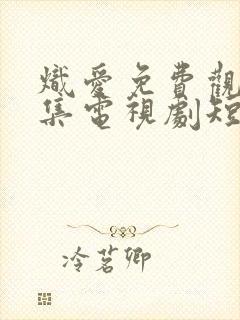 熾愛免費觀
集電視劇短
冷茗卿